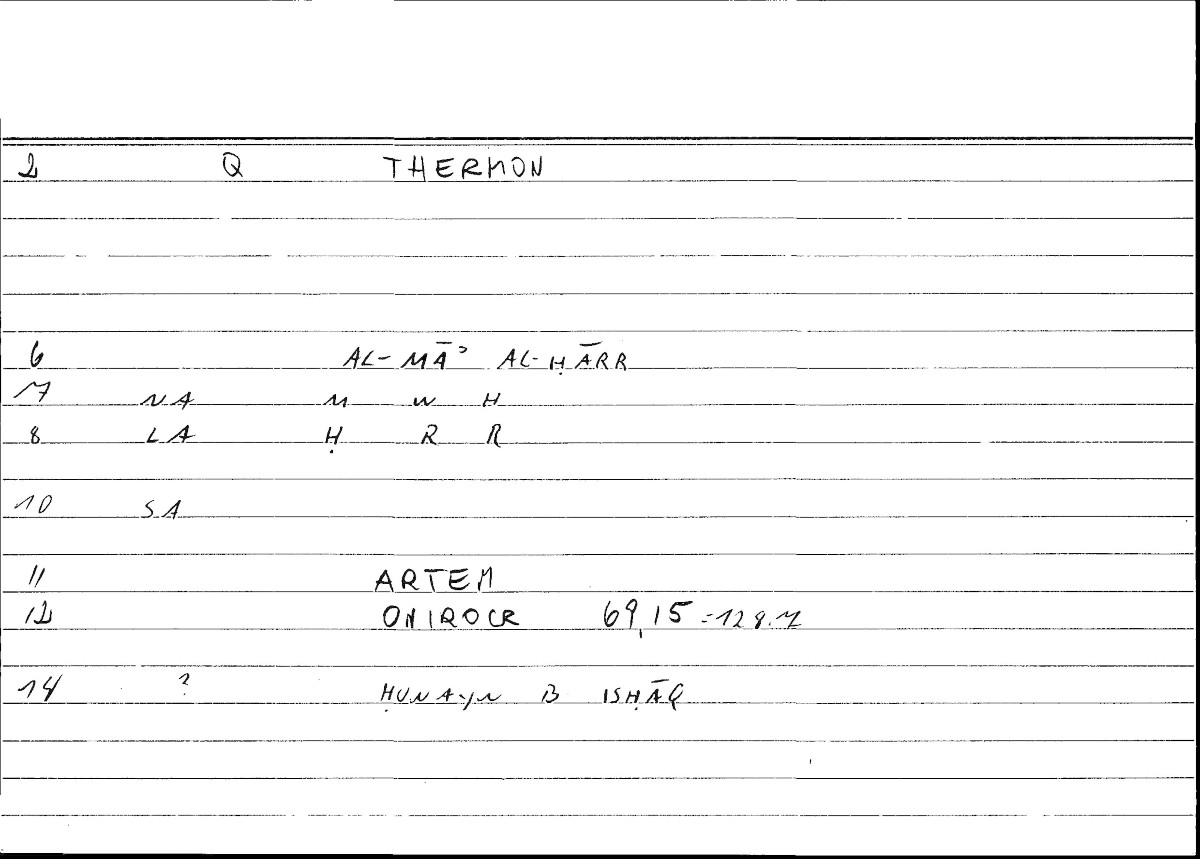 2 Q THERMON
6 AL-MĀʾ AL-ḤĀRR
7 NA M W H
8 LA Ḥ R R
10 SA
11 ARTEM
12 ONIROCR 69,15 = 128.7
14 ? ḤUNAYN B ISḤĀQ